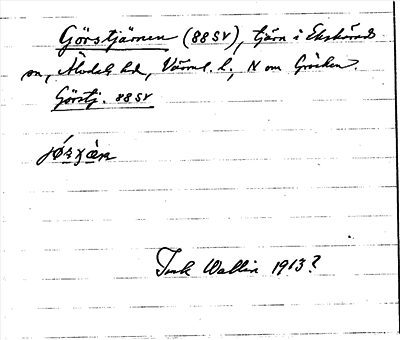 Görstjärnen (88 SV), tjärn i Ekshärads
sn, Älvdals hd, Värml. l., N om Gröcken.
Görstj. 88 SV
Wallin 1913?